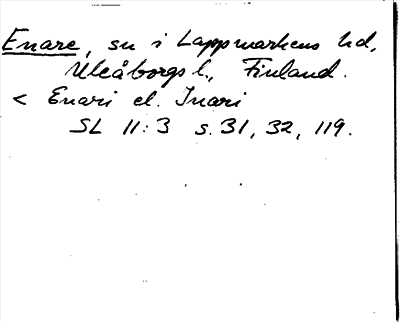 Enare, sn i Lappmarkens hd,
Uleåborgs l., Finland.
< Enari el. Inari
SL 11:3 s. 31, 32, 119.